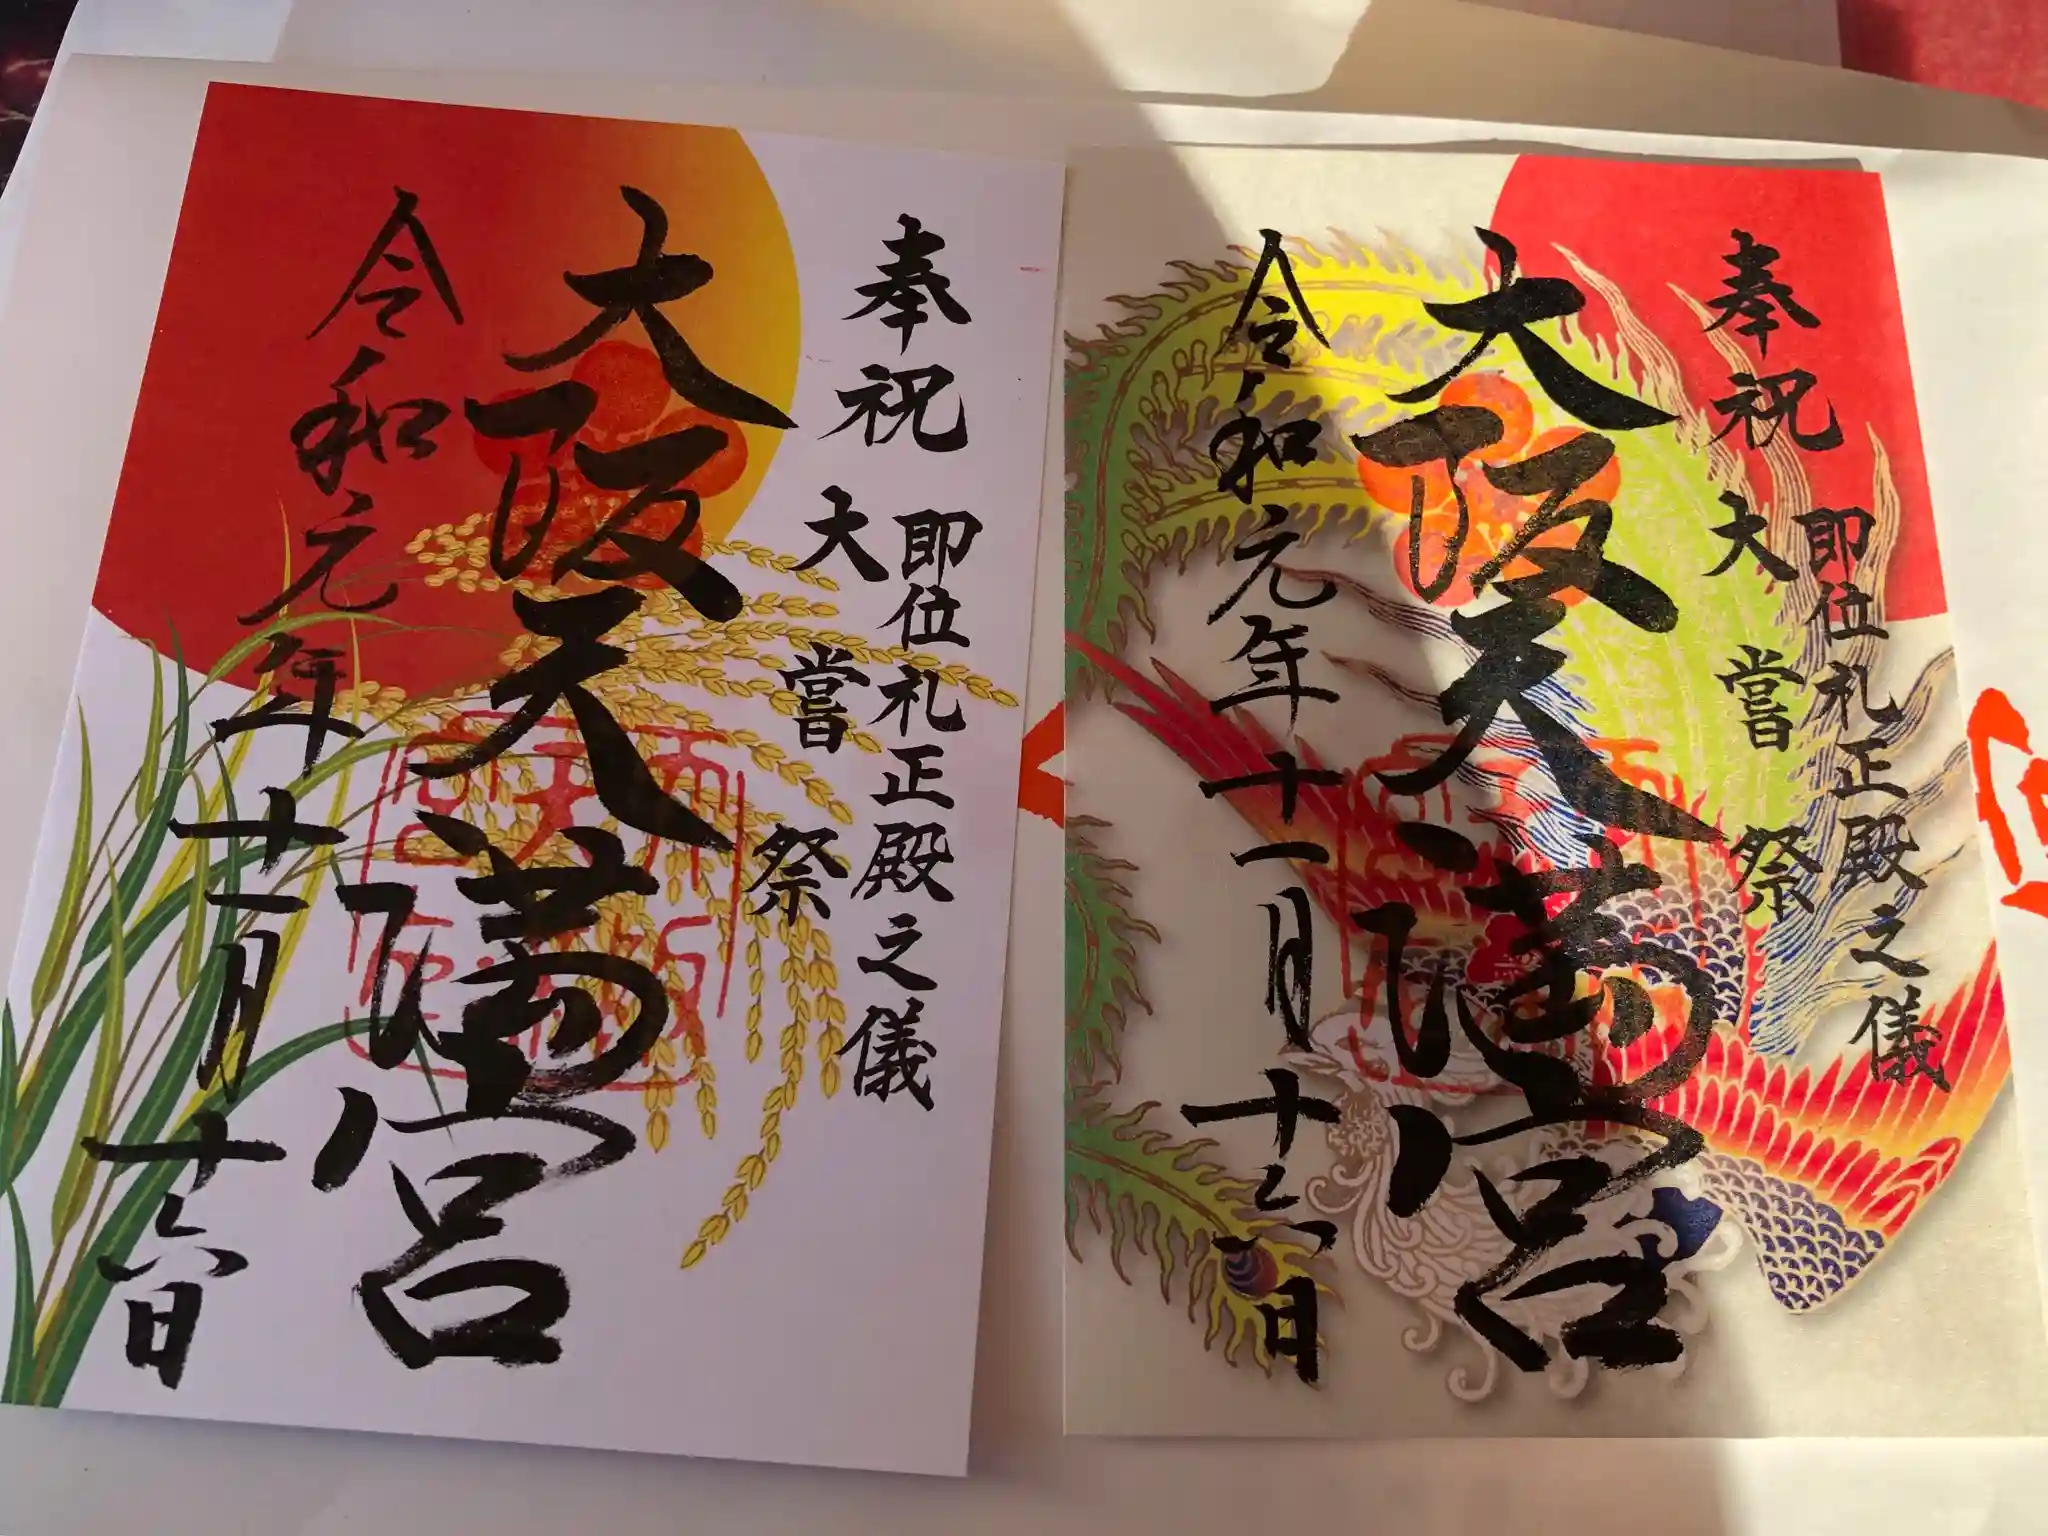 奉祝
即位礼正殿之儀
大嘗祭
大阪天満宮
令和元年十一月十六日
奉祝
即位礼正殿之儀
大嘗祭
大阪天満宮
令和元年十一月十六日